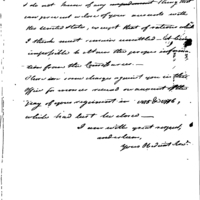 I do not know of any impediment thing that
can prevent a close of your accounts with
the United States, except that of rations which
I think must remain unsettled - it being
impossible to obtain the proper information
from the Contractors.
There are some charges against you in this
Office for monies received on account of the
pay of your regiment in 1785 & 1786,
which had best be closed —
I am with great respect,
and esteem,
Your Obedient Serv.